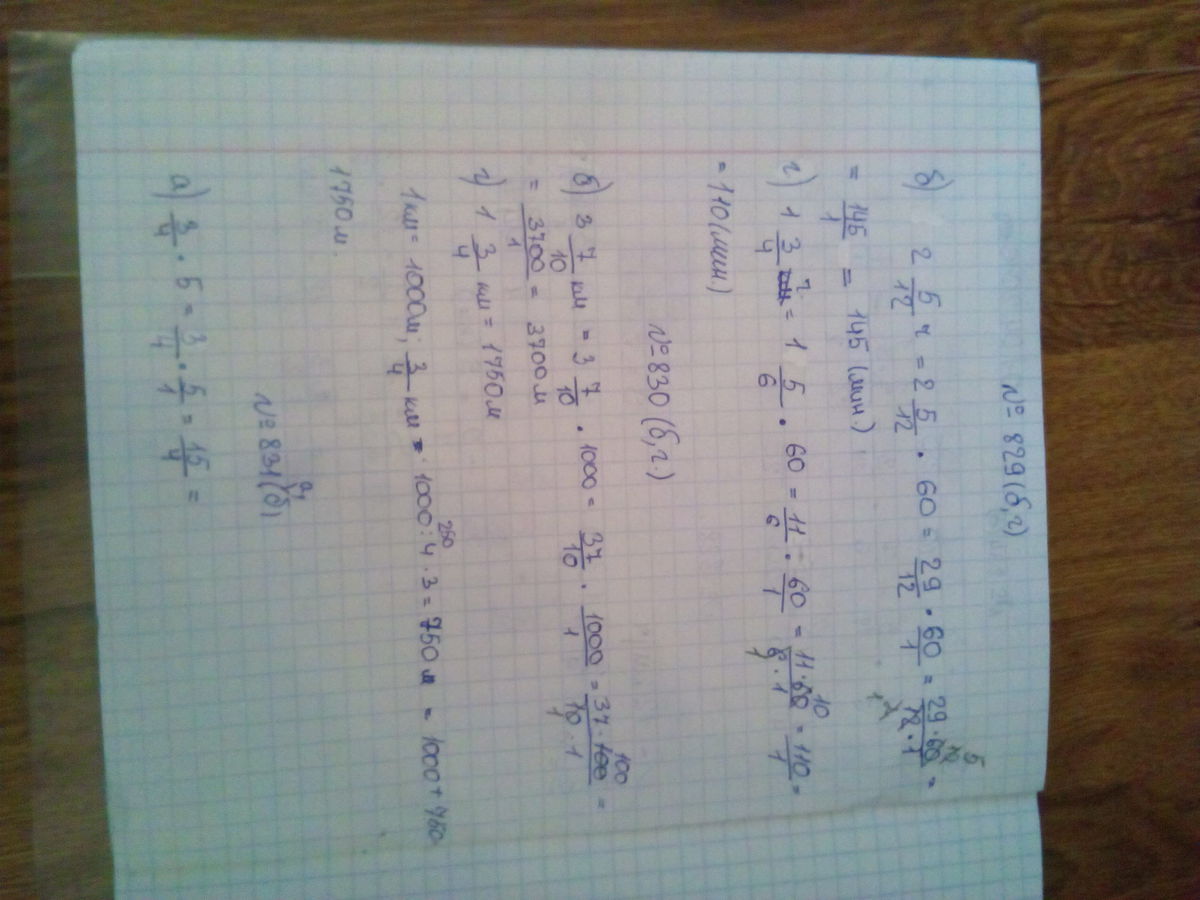 № 829(б,г)
б) 2 5/12 ч = 2 5/12 · 60 = 29/12 · 60/1 = 29·60/12·1 =
= 145/1 = 145 (мин.)
г) 1 3/4 ч = 1 5/6 · 60 = 11/6 · 60/1 = 11·60/6·1 = 110/1 =
= 110 (мин.)
№ 830 (б,г.)
б) 3 7/10 км = 3 7/10 · 1000 = 37/10 · 1000/1 = 37·100/10·1 =
= 3700/1 = 3700 м
г) 1 3/4 км = 1750 м
1км = 1000м; 3/4 км = 1000:4·3 = 750 м = 1000+750
1750 м.
№ 831(а,б)
а) 3/4 · 5 = 3/4 · 5/1 = 15/4 =